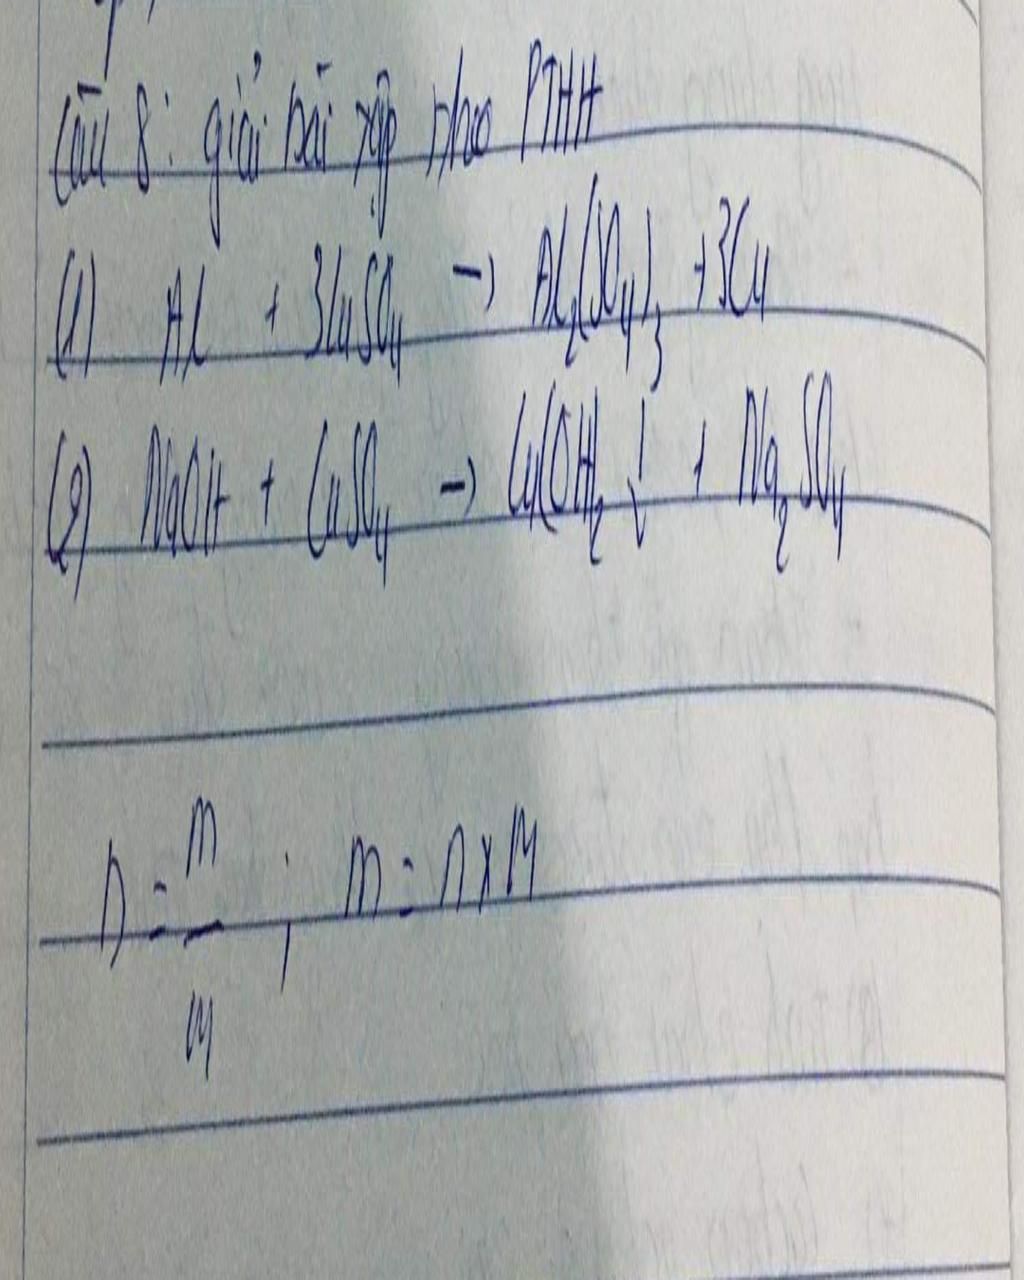 Câu 8: giải bài tập theo PTHH
(1) Al + 3CuSO4 → Al2(SO4)3 + 3Cu
(2) NaOH + CuSO4 → Cu(OH)2 ↓ + Na2SO4
n = m/M ; m = n x M